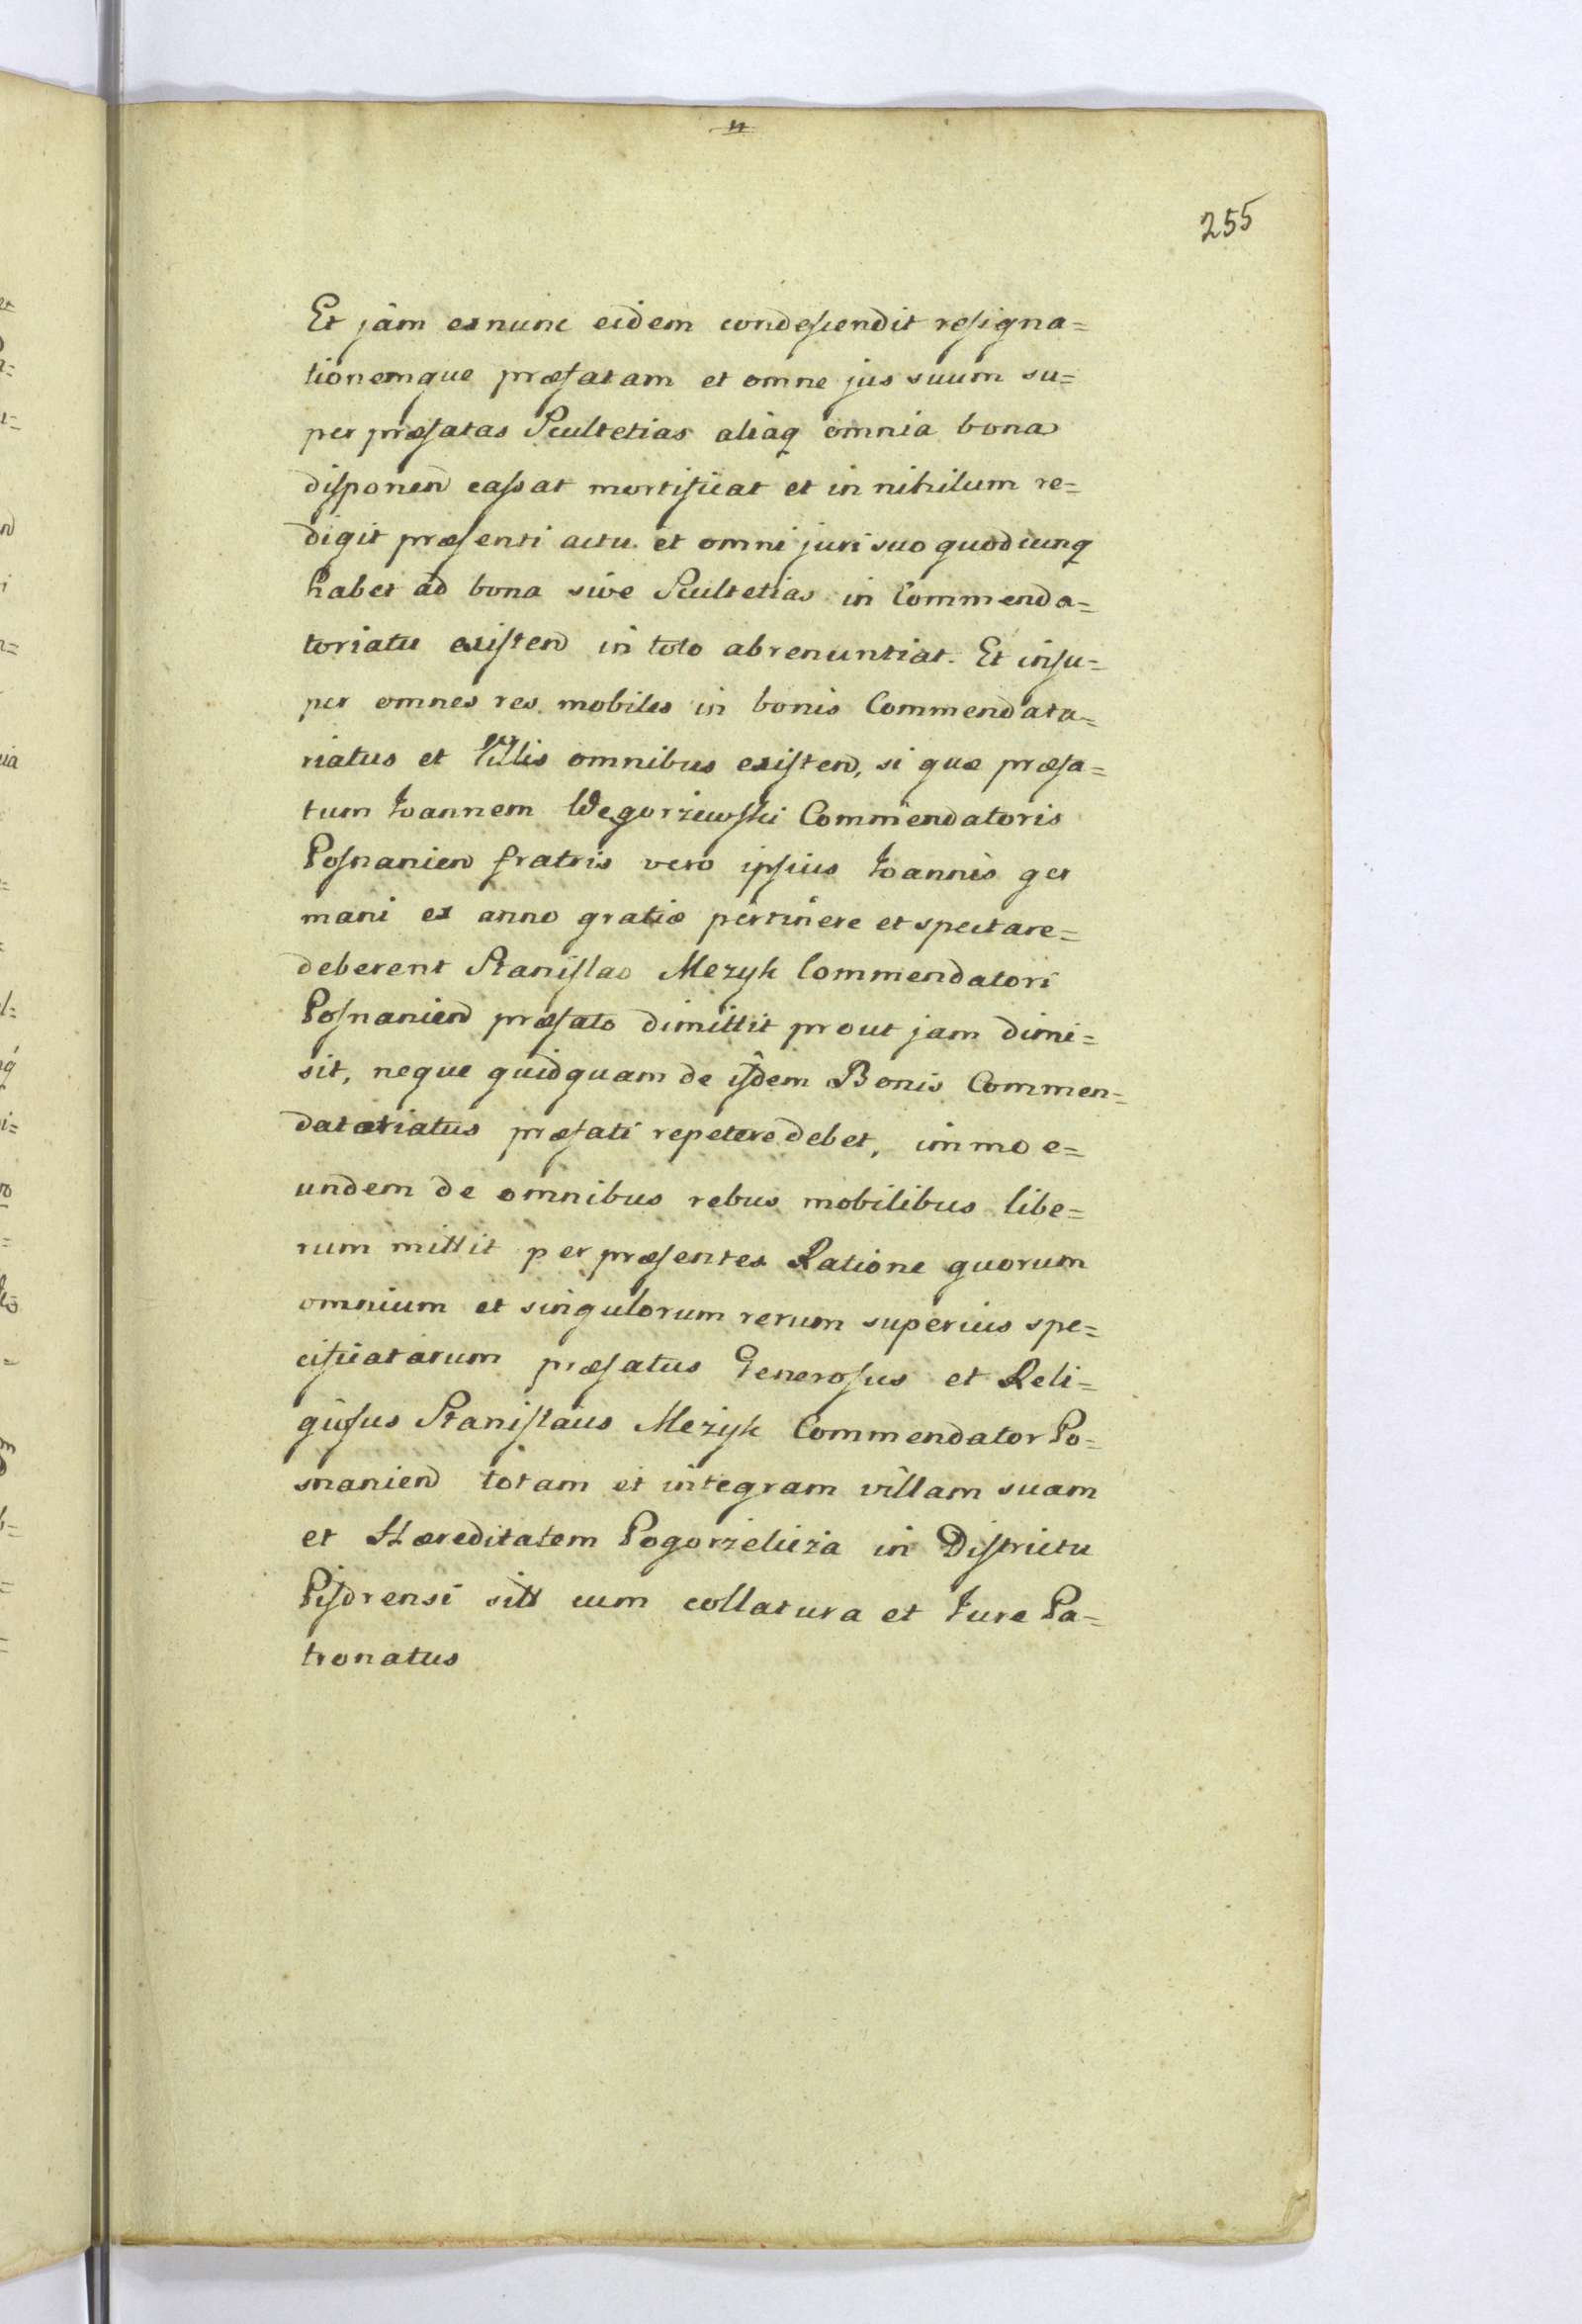 255
Et jâm exnunc eidem condescendit resigna=
tionemque præfatam et omne jus suum su=
per præfatas Scultetias aliaq omnia bona
disponen cassat mortificat et in nihilum re=
digit præsenti actu et omni juri suo quodcunq
habet ad bona sive Scultetias in Commenda=
toriatu existen in toto abrenuntiat. Et insu=
per omnes res mobiles in bonis Commendata=
riatus et Villis omnibus existen, si quæ præfa=
tum Joannem Węgorzewski Commendatoris
Posnanien fratris vero ipsius Joannis ger
mani ex anno gratiæ pertinere et spectare=
deberent Stanislao Mezyk Commendatori
Posnanien præfato dimittit prout jam dimi=
sit, neque quidquam de ijsdem Bonis Commen=
datoriatus præfati repetere debet, immo e=
undem de omnibus rebus mobilibus libe=
rum mittit per præsentes Ratione quorum
omnium et singulorum rerum superius spe=
cificatarum præfatus Generosus et Reli=
giosus Stanislaus Mezyk Commendator Po=
snanien totam et integram villam suam
et Hæreditatem Pogorzelicza in Districtu
Pisdrensi sitt cum collatura et Jure Pa=
tronatus